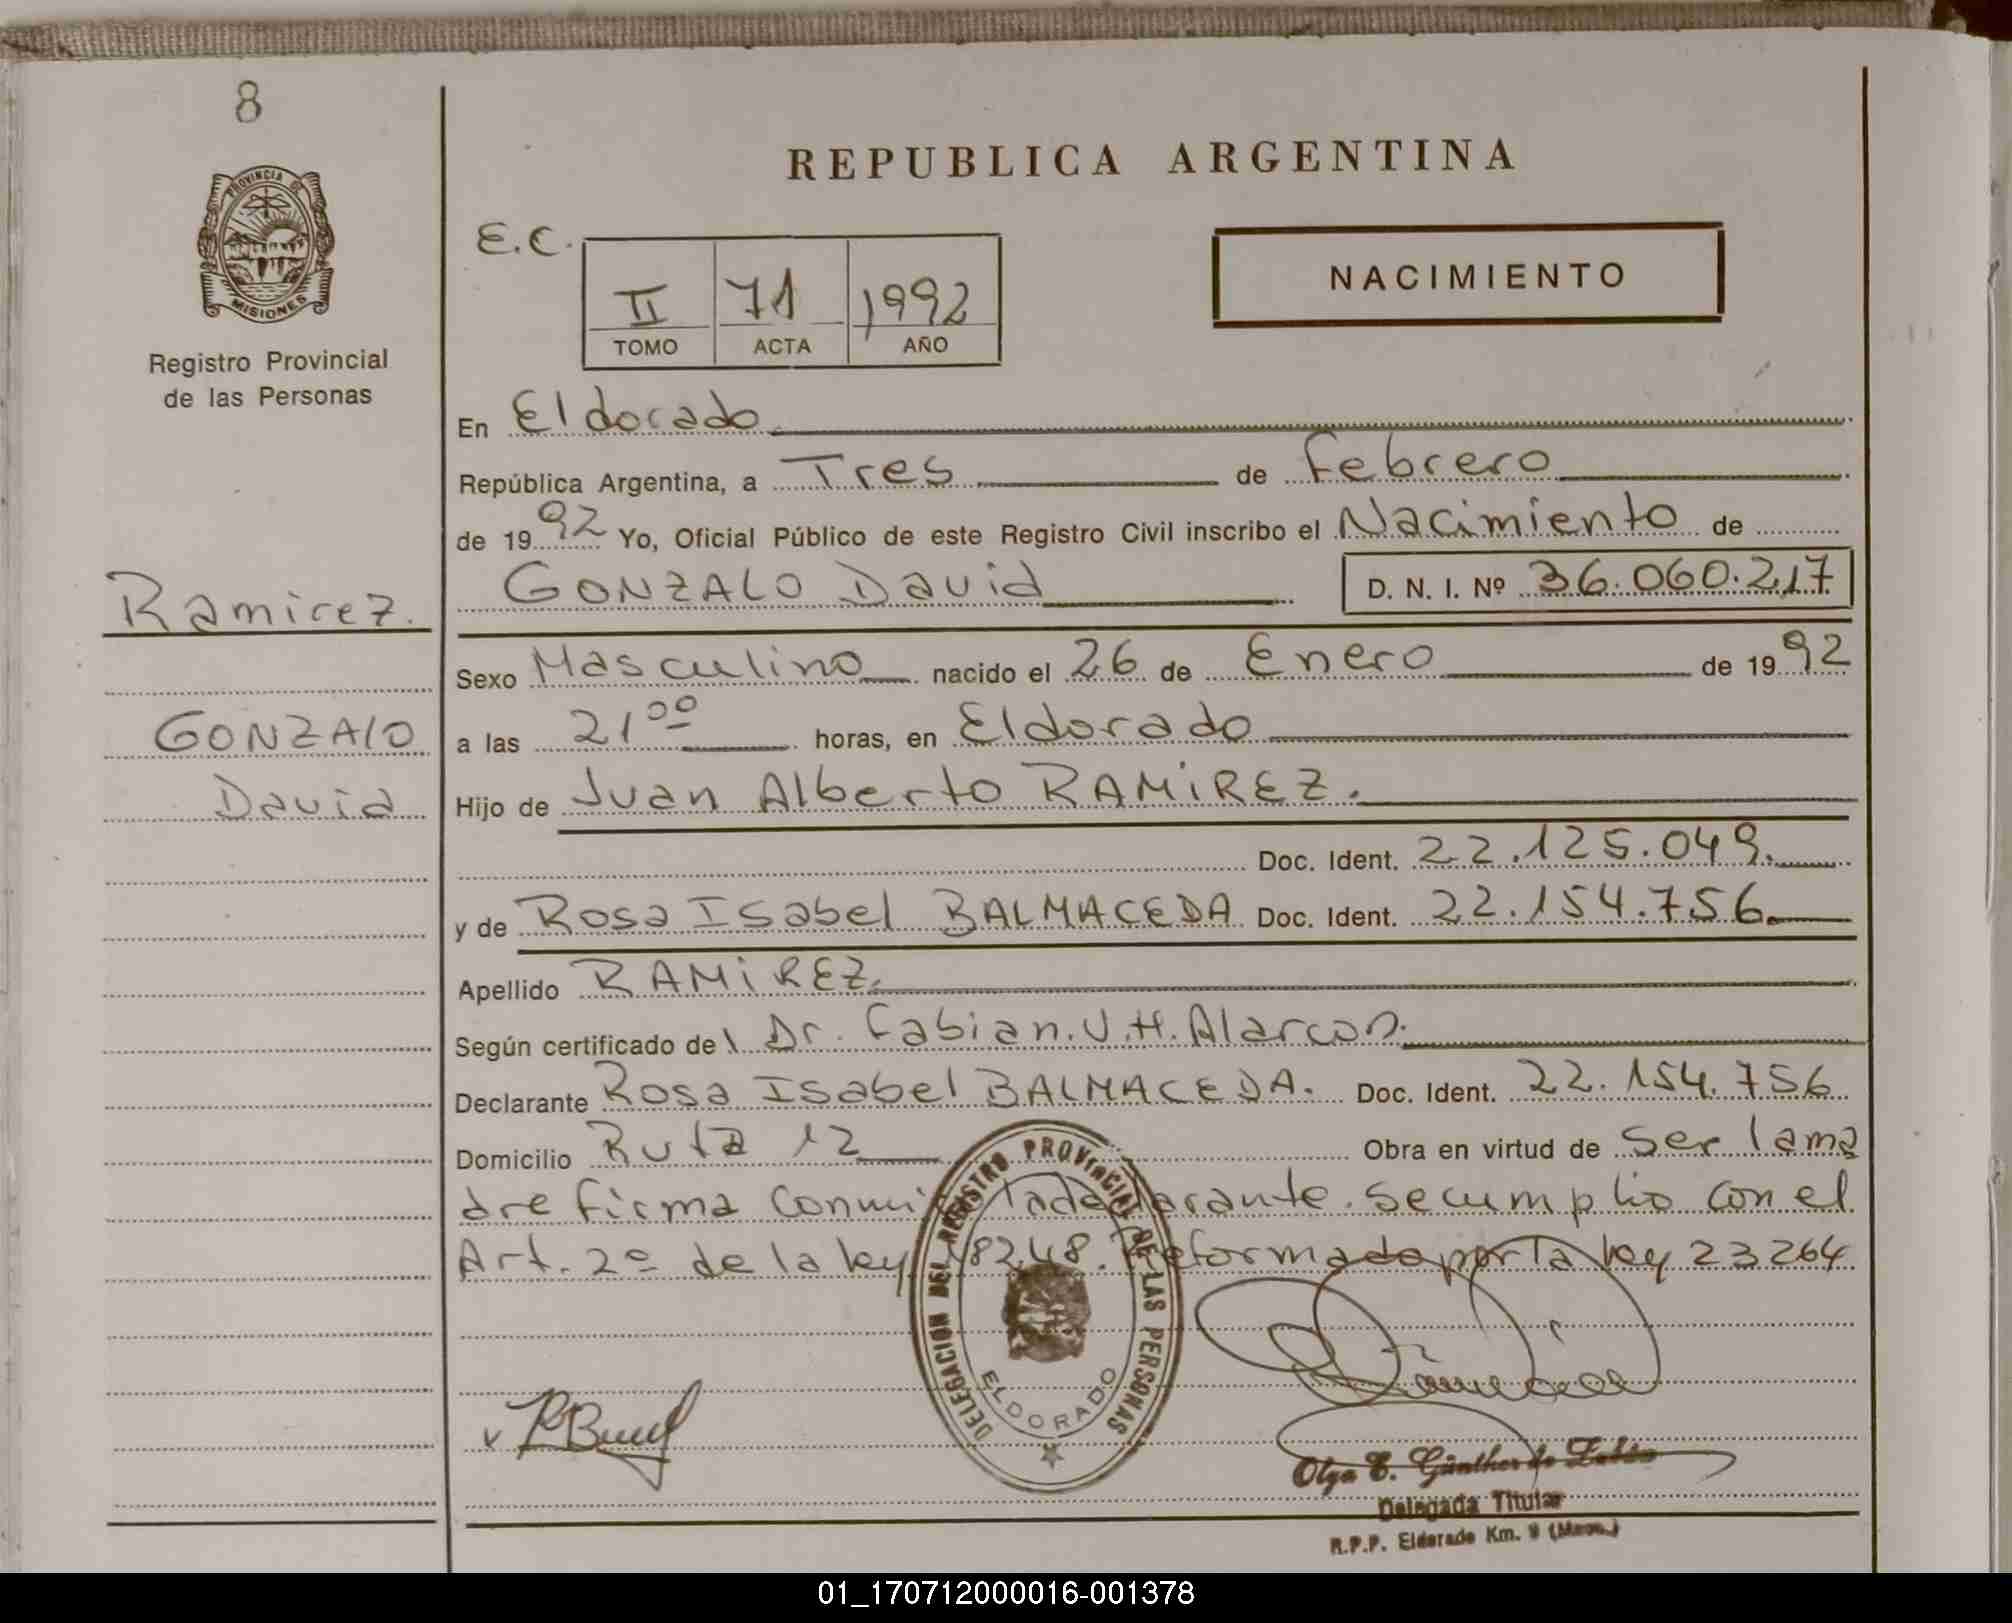 8
PROVINCIA DE
MISIONES
Registro Provincial
de las Personas
REPUBLICA ARGENTINA
E.C.
II 71 1992
TOMO ACTA AÑO
NACIMIENTO
En Eldorado
República Argentina, a Tres de Febrero
de 1992 Yo, Oficial Público de este Registro Civil inscribo el Nacimiento de
Ramirez.
GONZALO David D. N. I. Nº 36.060.217
Sexo Masculino nacido el 26 de Enero de 1992
GONZALO
a las 21 00 horas, en Eldorado
David
Hijo de Juan Alberto RAMIREZ.
Doc. Ident. 22.125.049.
y de Rosa Isabel BALMACEDA Doc. Ident. 22.154.756.
Apellido RAMIREZ.
Según certificado del Dr. Fabian.V.H.Alarcon.
Declarante Rosa Isabel BALMACEDA. Doc. Ident. 22.154.756
Domicilio Ruta 12 Obra en virtud de Ser la ma
dre firma conmi la declarante. Se cumplio con el
Art. 2º de la ley 18248. Reformado por la ley 23264
DELEGACIÓN DEL REGISTRO PROVINCIAL DE LAS PERSONAS
ELDORADO
Olga E. Günther de
Delegada Titular
R.P.P. Eldorado Km. 9 (Mnes.)
01_170712000016-001378